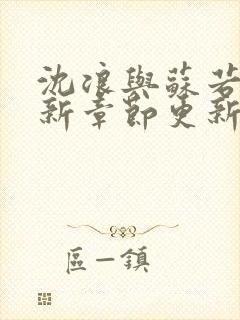 沈浪與蘇若
新章節更新
區一鎮